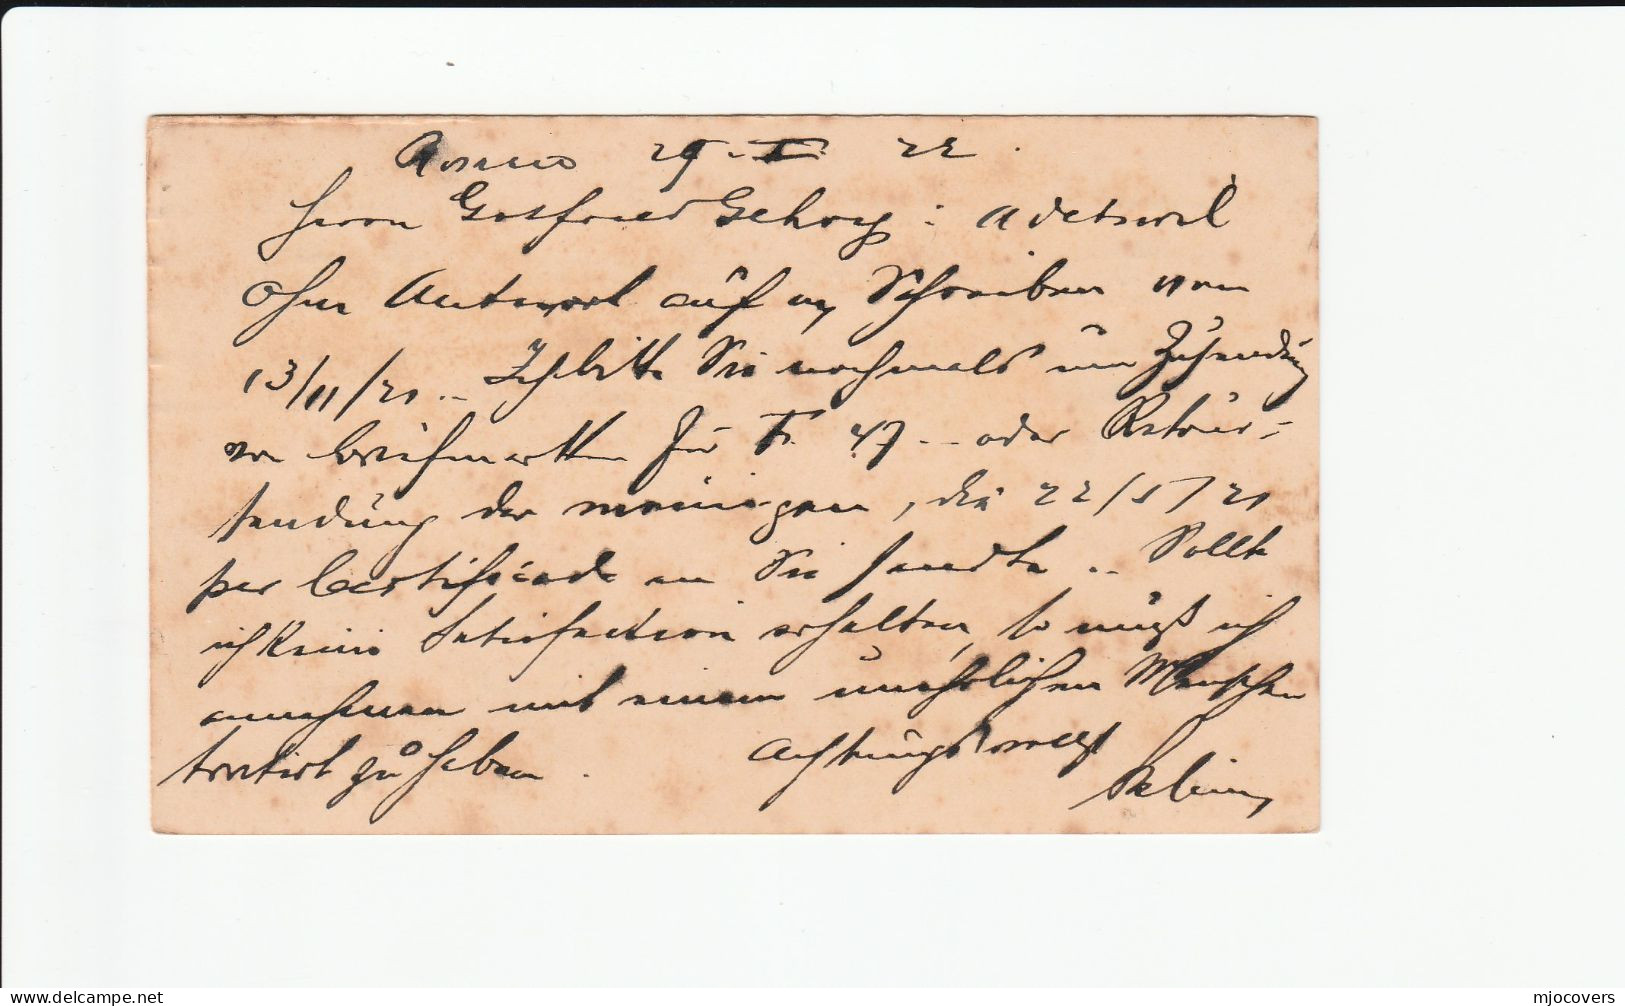 Rosario 29 - I. 22.
Herrn Gottfried : Adetswil
Ohne Antwort auf m/ Schreiben vom
13/11/21 .. Ich bitte Sie nochmals um Zusendung
von Briefmarken für F. 47 .. oder Retour-
sendung der meinigen, die 22/5/21
per Certificado an Sie sandte .. Sollte
ich keine Satisfaction erhalten, so muß ich
annehmen mit einem unehrlichen Menschen
tractirt zu haben. Achtungsvollst
mjocovers